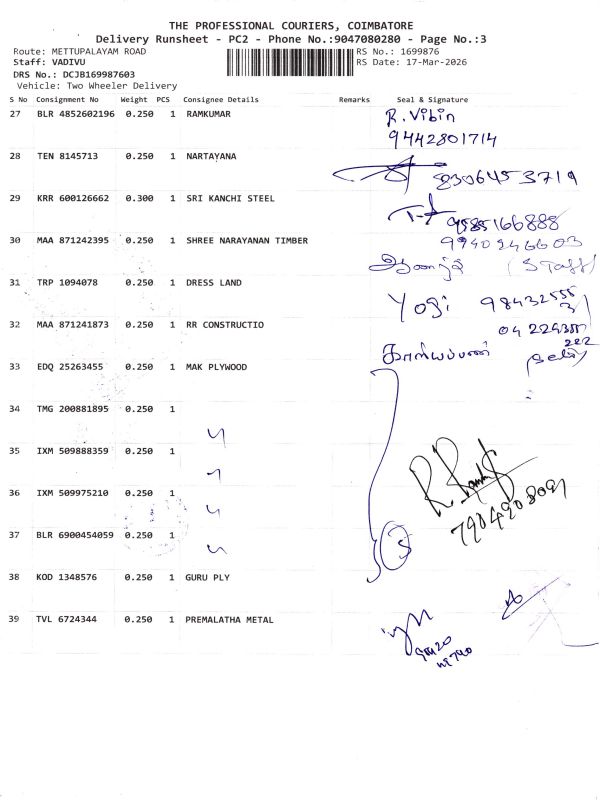 THE PROFESSIONAL COURIERS, COIMBATORE
Delivery Runsheet - PC2 - Phone No.:9047080280 - Page No.:3
Route: METTUPALAYAM ROAD RS No.: 1699876
Staff: VADIVU RS Date: 17-Mar-2026
DRS No.: DCJB169987603
Vehicle: Two Wheeler Delivery
S No Consignment No Weight PCS Consignee Details Remarks Seal & Signature
27 BLR 4852602196 0.250 1 RAMKUMAR R. Vibin
9442801714
28 TEN 8145713 0.250 1 NARTAYANA 8306453719
29 KRR 600126662 0.300 1 SRI KANCHI STEEL 9585166888
30 MAA 871242395 0.250 1 SHREE NARAYANAN TIMBER 9940246603
(Staff)
31 TRP 1094078 0.250 1 DRESS LAND Yogi
32 MAA 871241873 0.250 1 RR CONSTRUCTIO
33 EDQ 25263455 0.250 1 MAK PLYWOOD
34 TMG 200881895 0.250 1
35 IXM 509888359 0.250 1
36 IXM 509975210 0.250 1
7904908091
37 BLR 6900454059 0.250 1
38 KOD 1348576 0.250 1 GURU PLY
39 TVL 6724344 0.250 1 PREMALATHA METAL